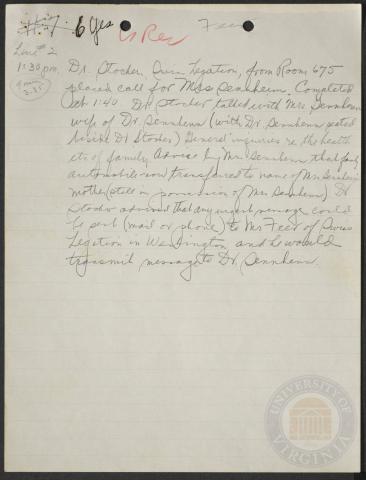 #7 6 Yes
Line #2
1:30 pm
Dr. Stocker, Swiss Legation, from Room 675
placed call for Mrs Sennheim. Completed
at 1:40. Dr. Stocker talked with Mrs. Sennheim
wife of Dr Sennheim (with Dr. Sennheim seated
beside Dr Stocker) General inquiries re the health
etc of family. Advise by Mrs. Sennheim that family
automobile now transferred to name of Mrs Sennheim's
mother (still in possession of Mrs Sennheim) Dr
Stocker advised that any urgent message could
be sent (mail or phone) to Mr Feer of Swiss
Legation in Washington and he would
transmit message to Dr. Sennheim.
UNIVERSITY OF
VIRGINIA